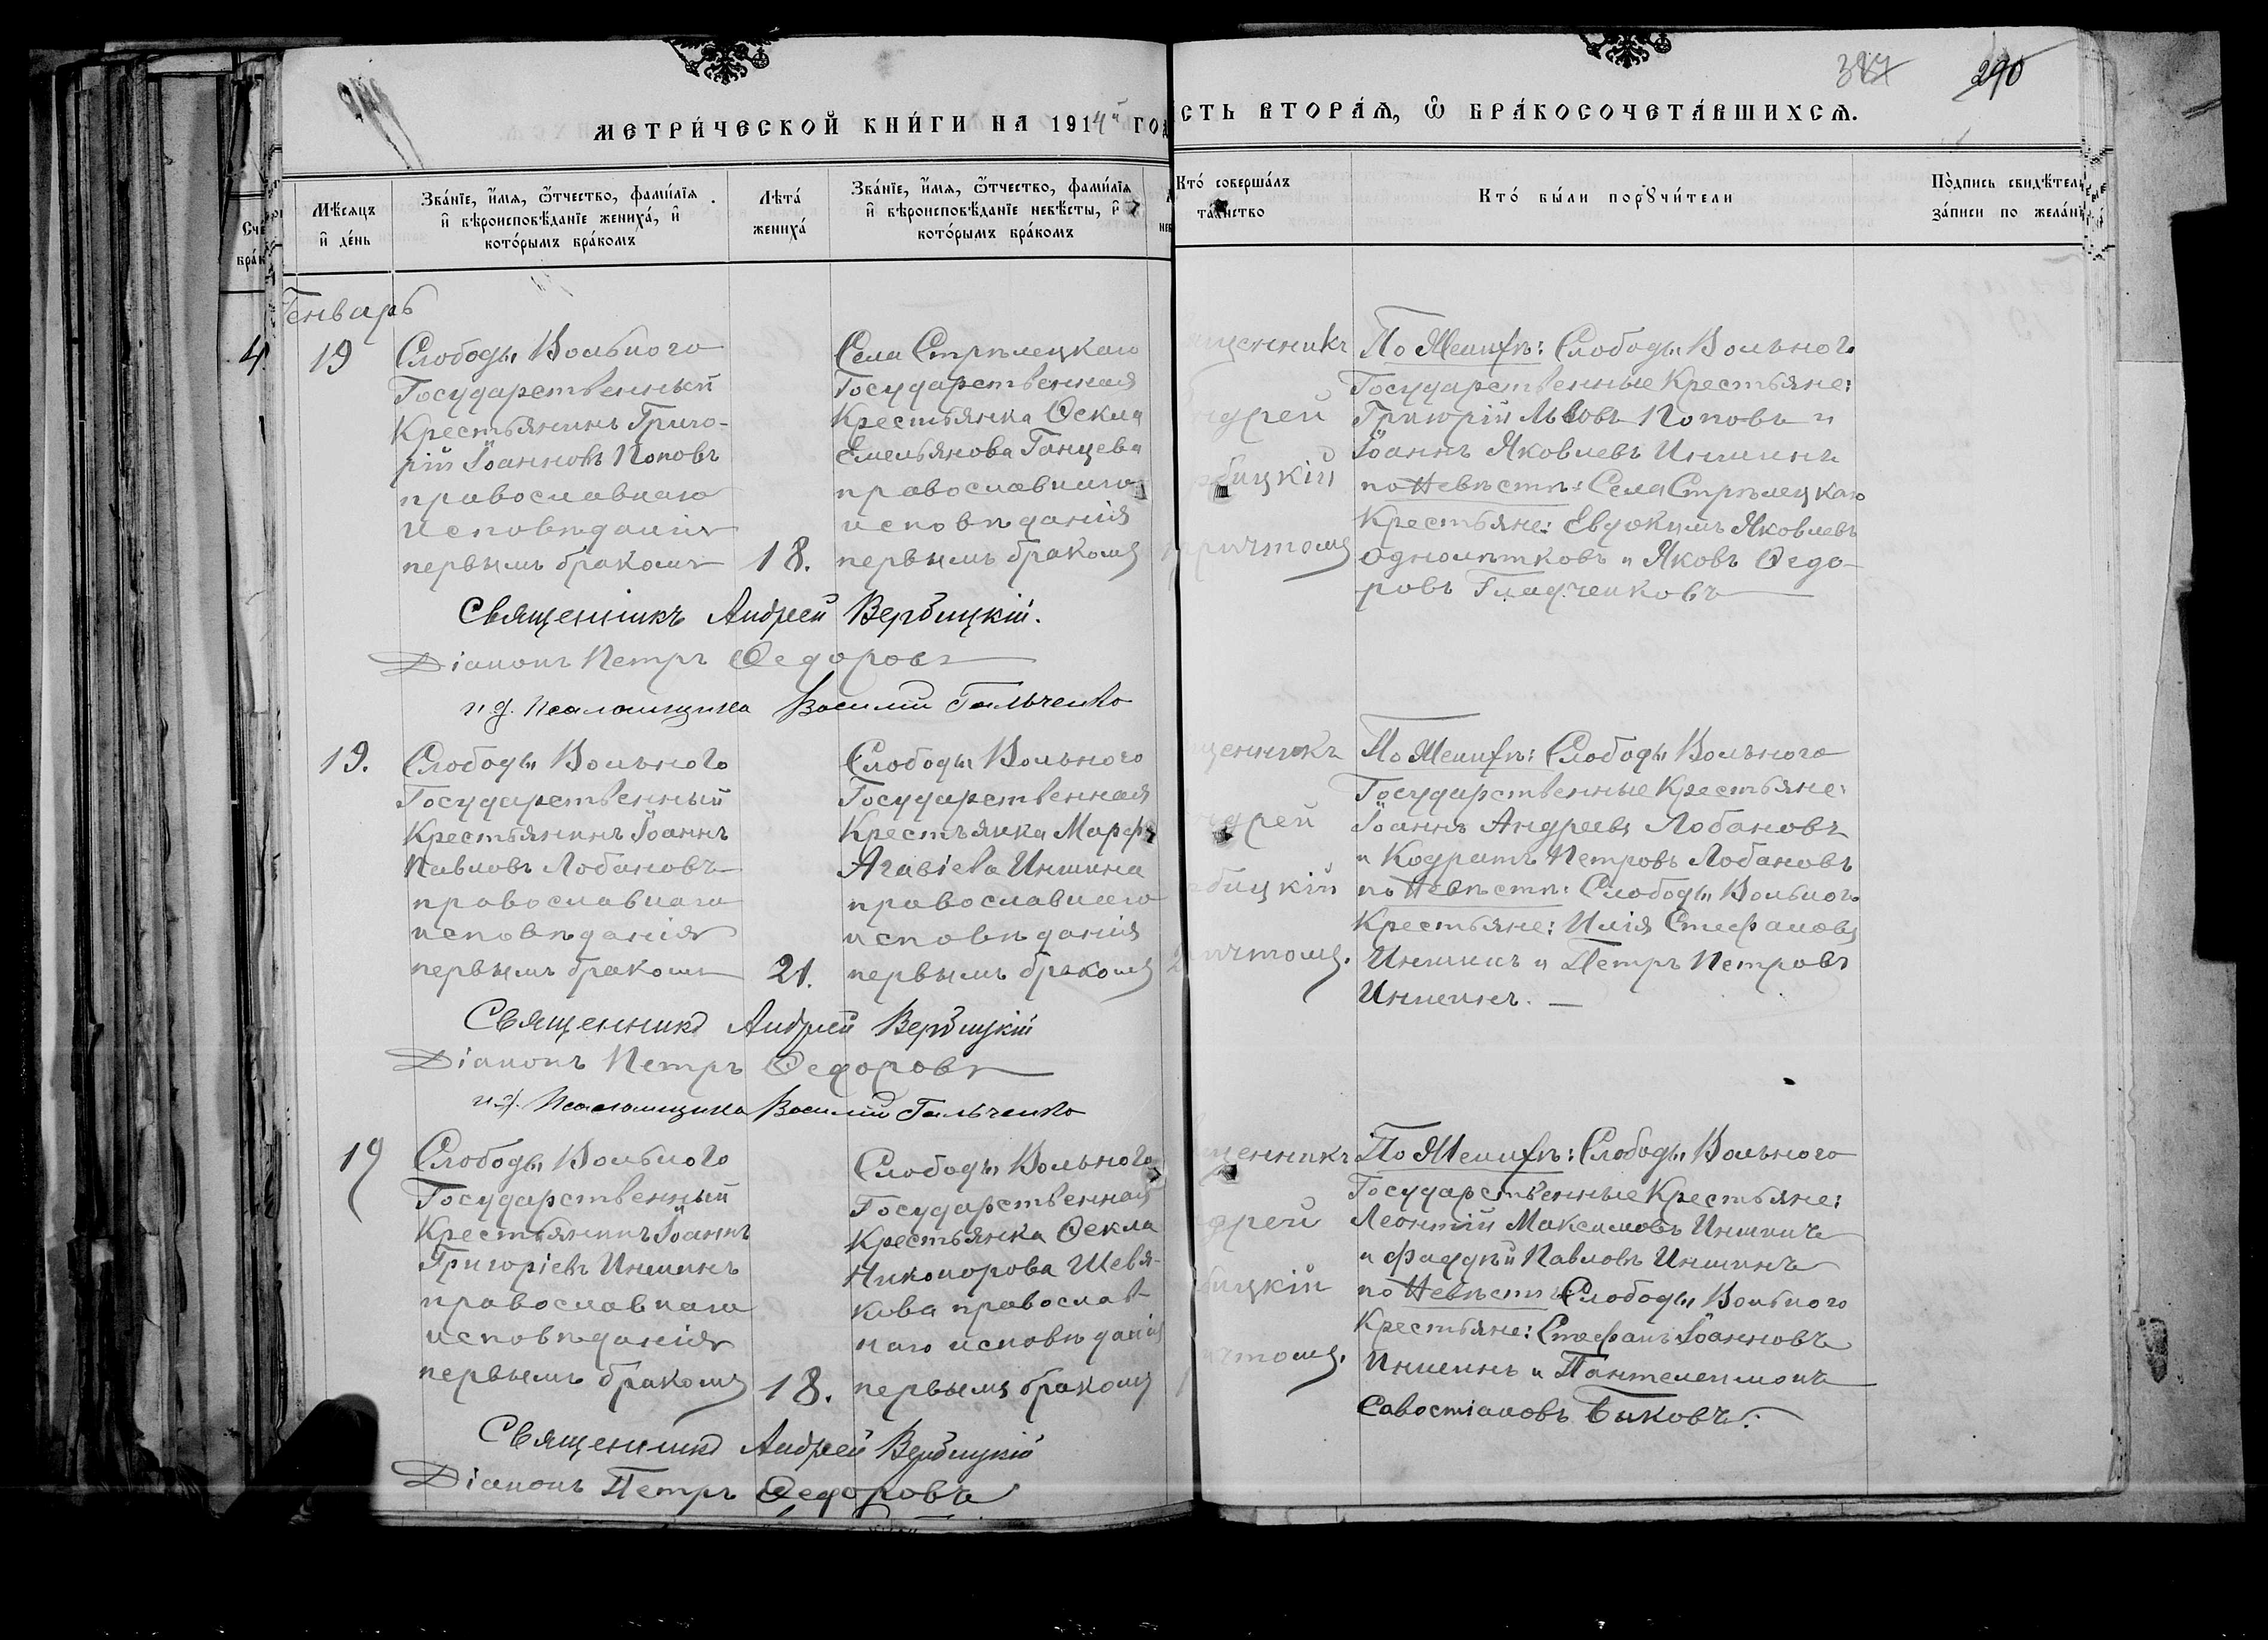 387 290
МЕТРИ́ЧЕСКОЙ КНИ́ГИ НА 1914й ГОД
СТЬ ВТОРА́Ѧ, Ѽ БРАКОСОЧЕТА́ВШИХСѦ.
Сче
бра́к
Мѣ́сяцъ
и҆ де́нь
Зва́нїе, и҆́мя, ѻ҆́тчество, фами́лїя
и҆ вѣроисповѣ́данїе жениха́, и҆
кото́рымъ бра́комъ
Лѣ́та
жениха́
Зва́нїе, и҆́мя, ѻ҆́тчество, фами́лїя
и҆ вѣроисповѣ́данїе невѣ́сты, и҆
кото́рымъ бра́комъ
нев
Кто́ соверша́лъ
та́инство
Кто́ бы́ли порꙋчи́тели
По́дпись свидѣ́тел
за́писи по жела́н
Генварь
4.
19
Слободы Вольного
Государственный
Крестьянинъ Григо-
рій Іоанновъ Поповъ
православнаго
исповѣданія
первымъ бракомъ
18.
Села Стрѣлецкаго
Государственная
Крестьянка Ѳекла
Емельянова Ганцева
православнаго
исповѣданія
первымъ бракомъ
щенникъ
ндрей
бицкій
причтомъ
По Женихѣ: Слободы Вольного
Государственные Крестьяне:
Григорій Львовъ Поповъ и
Іоаннъ Яковлевъ Иншинъ
по Невѣстѣ: Села Стрѣлецкаго
Крестьяне: Евдокимъ Яковлевъ
Однолѣтковъ и Яковъ Ѳедо-
ровъ Гладченковъ
Священникъ Андрей Вербицкій.
Діаконъ Петръ Ѳедоровъ
и. д. Псаломщика Василій Гальченко
19.
Слободы Вольного
Государственный
Крестьянинъ Іоаннъ
Павловъ Лобановъ
православнаго
исповѣданія
первымъ бракомъ
21.
Слободы Вольного
Государственная
Крестьянка Марфа
Агавіева Иншина
православнаго
исповѣданія
первымъ бракомъ
2
щенникъ
ндрей
бицкій
ичтомъ.
По Женихѣ: Слободы Вольного
Государственные Крестьяне:
Іоаннъ Андреевъ Лобановъ
и Кодратъ Петровъ Лобановъ
по Невѣстѣ: Слободы Вольного
Крестьяне: Илія Стефановъ
Иншинъ и Петръ Петровъ
Иншинъ. —
Священникъ Андрей Вербицкій
Діаконъ Петръ Ѳедоровъ
и. д. Псаломщика Василій Гальченко
19
Слободы Вольного
Государственный
Крестьянинъ Іоаннъ
Григоріевъ Иншинъ
православнаго
исповѣданія
первымъ бракомъ
18.
Слободы Вольного
Государственная
Крестьянка Ѳекла
Никонорова Шевя-
кова православ-
наго исповѣданія
первымъ бракомъ
щенникъ
дрей
бицкій
чтомъ.
По Женихѣ: Слободы Вольного
Государственные Крестьяне:
Леонтій Максимовъ Иншинъ
и Фаддѣй Павловъ Иншинъ
по Невѣстѣ: Слободы Вольного
Крестьяне: Стефанъ Іоанновъ
Иншинъ и Пантелеимонъ
Савостіановъ Быковъ.
Священникъ Андрей Вербицкій
Діаконъ Петръ Ѳедоровъ